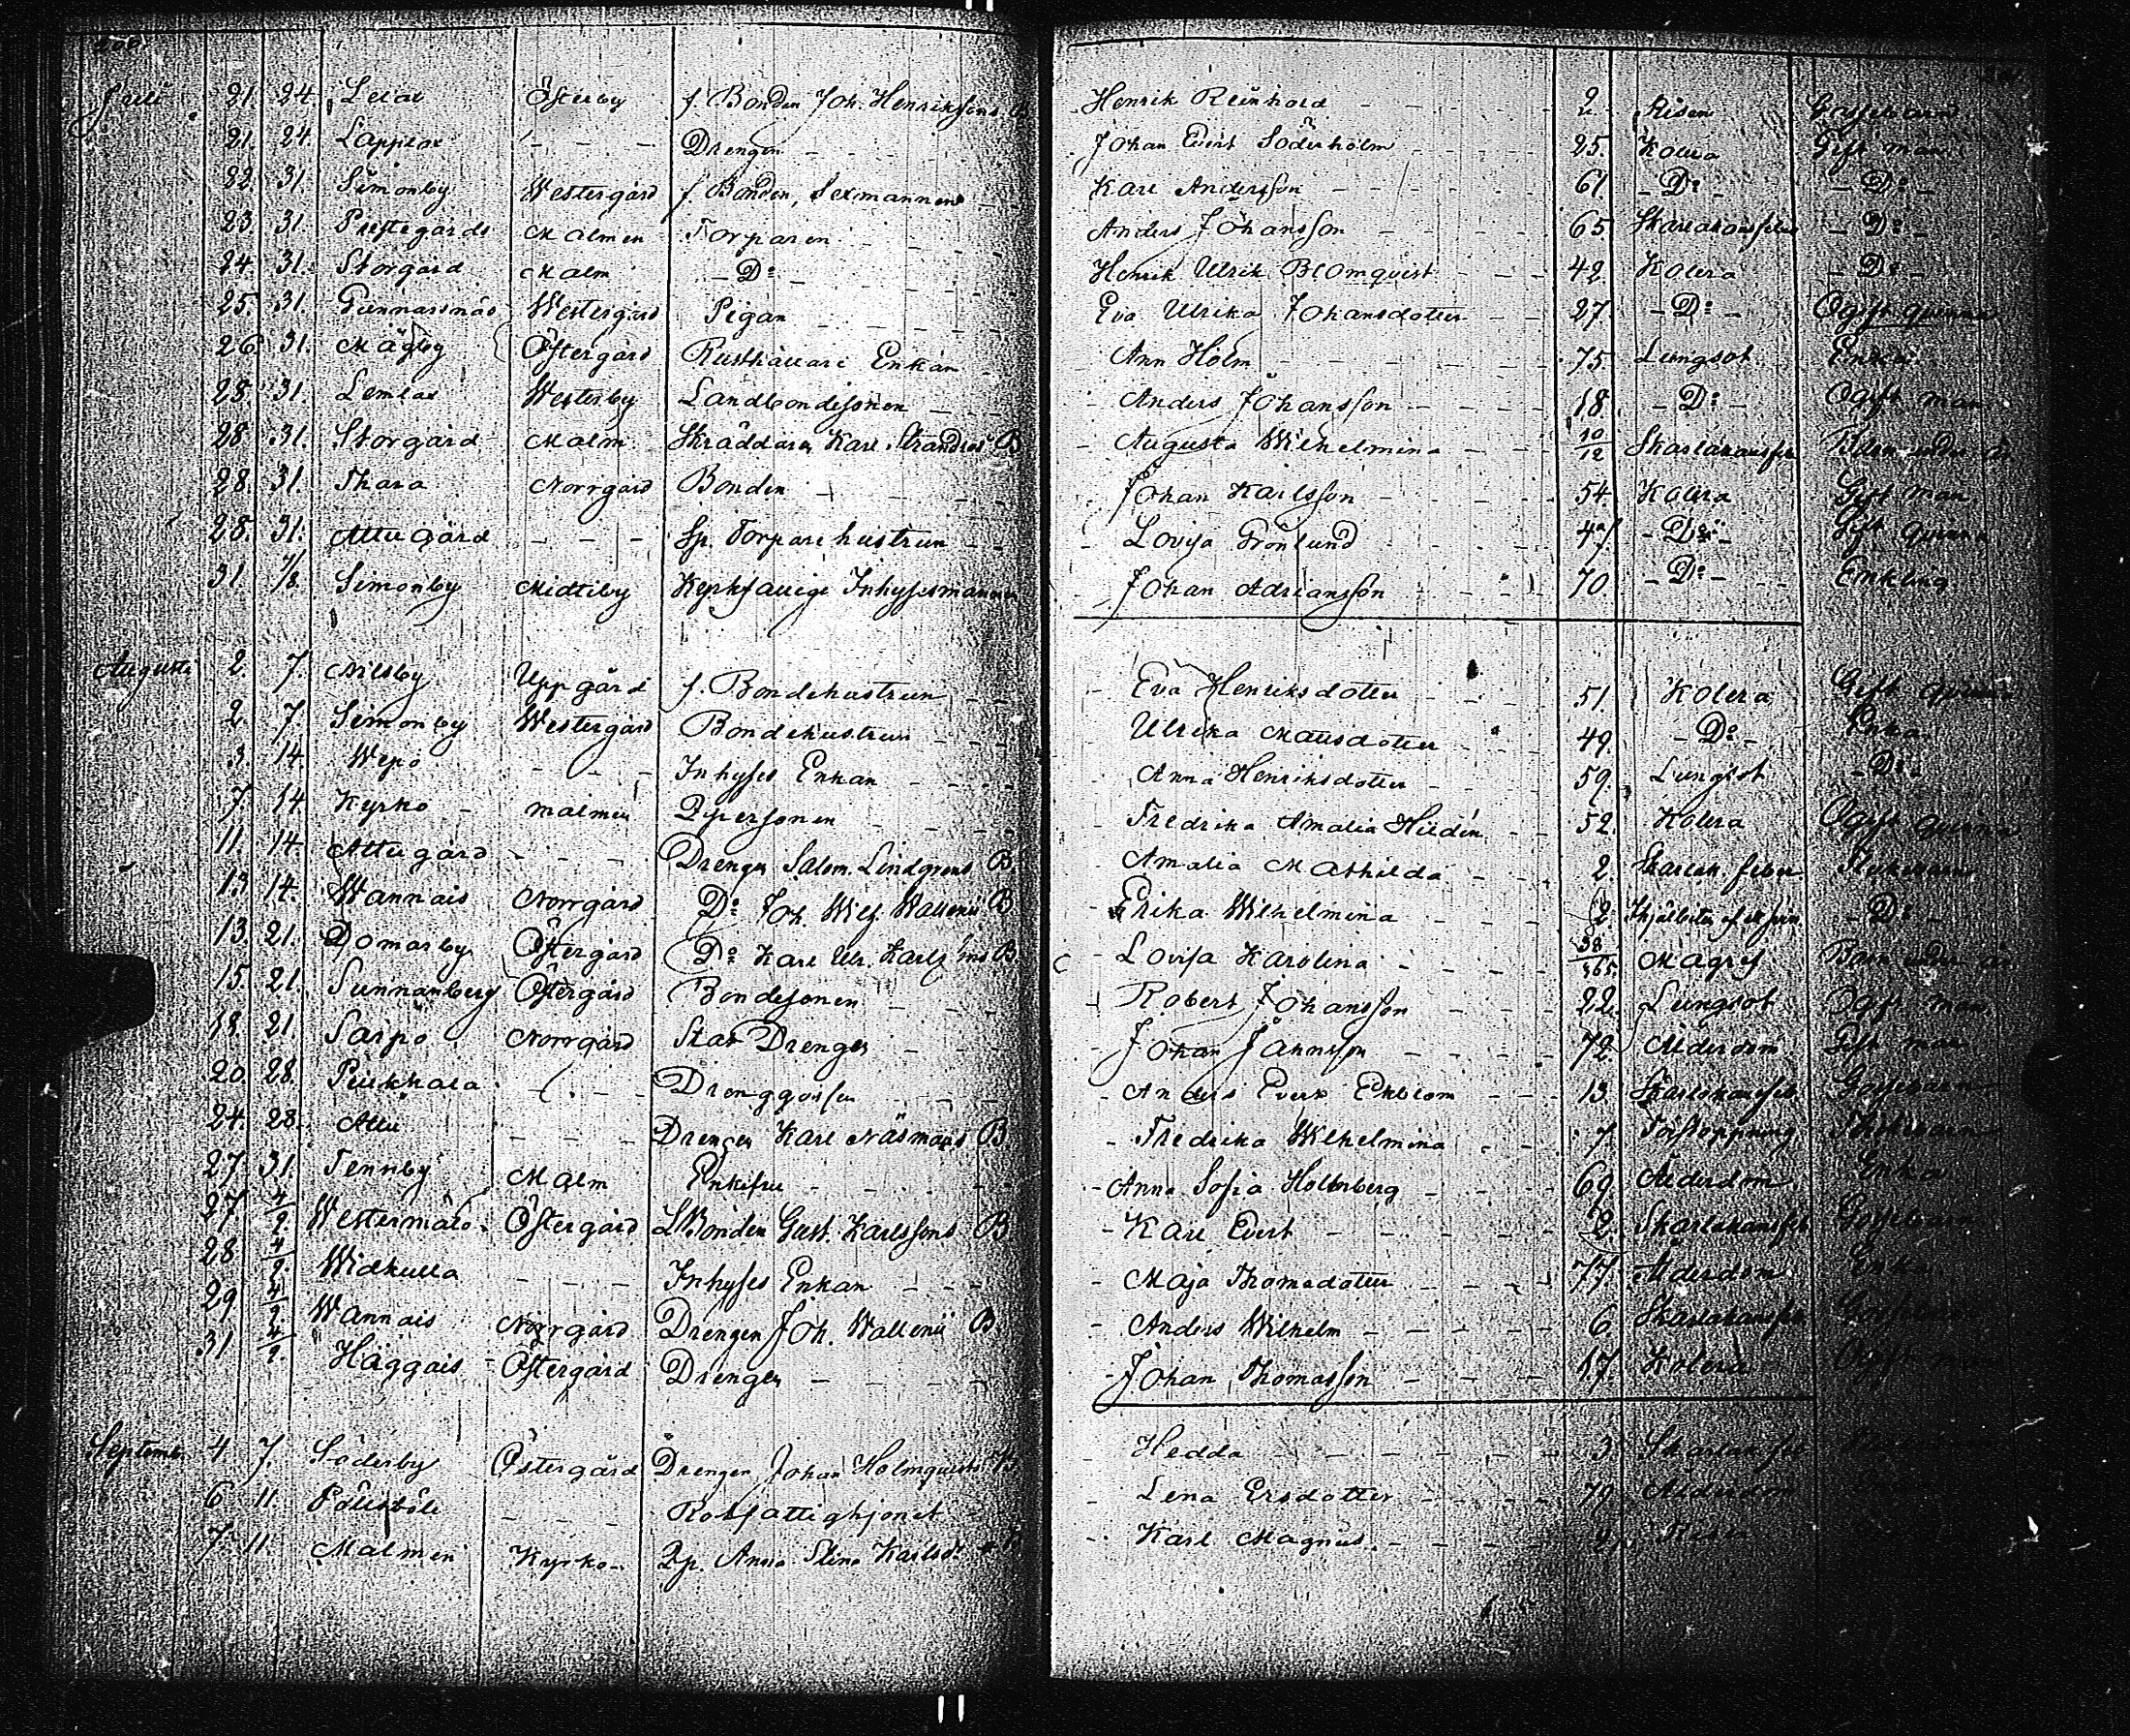 Juli 21. 24. Lelax Österby f. Bonden Joh. Henrikssons B Henrik Reinhold 2 Risen Gossebarn
21. 24. Lapplax Drengen Johan Evert Söderholm 25. Kolera Gift man
22. 31. Simonby Westergård f. Bonden, Sexmannen Karl Andersson 61. D:o D:o
23. 31. Prestegårds Malmen Torparen Anders Johansson 65. Skarlakansfeber D:o
24. 31. Storgård Malm D:o Henrik Ulrik Blomqvist 42. Kolera D:o
25. 31. Gunnarsnäs Westergård Pigan Eva Ulrika Johansdotter 27. D:o Ogift qvinna
26. 31. Mågby Östergård Rusthållare Enkan Ann Holm 75. Lungsot Enka
28. 31. Lemlax Westerby Landbondesonen Anders Johansson 18. D:o Ogift man
28. 31. Storgård Malm Skräddaren Karl Strandros B Augusta Wilhelmina 10/12 Skarlakansfeb Barn under år
28. 31. Thara Norrgård Bonden Johan Karlsson 54. Kolera Gift man
28. 31. Attu gård Sp. Torpare hustrun Lovisa Grönlund 47 D:o Gift qvinna
31 1/8 Simonby Midtiby Kyrkfattige Inhysesmannen Johan Adriansson 70 D:o Enkling
Augusti 2. 7. Nilsby Uppgård f. Bondehustrun Eva Henriksdotter 51 Kolera Gift qvinna
2 7. Simonby Westergård Bondehustrun Ulrika Matsdotter 49. D:o Enka
3. 14. Wepo Inhyses Enkan Anna Henriksdotter 59. Lungsot D:o
7. 14 Kyrko malmen Qpersonen Fredrika Amalia Hilden 52. Kolera Ogift qvinna
11. 14 Attu gård Drengen Salom. Lindgrens B. Amalia Mathilda 2. Skarlak. feber Flickebarn
13 14. Wannais Norrgård D:o Joh. Wilh. Wallenii B Erika Wilhelmina 2 D:o
13. 21. Domarby Östergård D:o Karl Ulr. Karls sons B. Lovisa Karolina 38/365 Magref Barn under år
15. 21. Sunnanberg Östergård Bondesonen Robert Johansson 22. Lungsot Ogift man
18. 21 Sarpo Norrgård Drengen Johan Jannsson 72. Ålderdom Gift man
20. 28. Piukkala Drenggossen Anders Evert Ekblom 13 Skarlakansfeb Gossebarn
24. 28. Attu Drengen Karl Näsmans B Fredrika Wilhelmina 7 Förstoppning Flickebarn
27 31. Tennby Malm Enkefru Anna Sofia Hollnberg 69. Ålderdom Enka
27 4/9. Westermälo Östergård L Bonden Gust. Karlssons B Karl Evert 2. Skarlakansfeb Gossebarn
28 4/9. Widkulla Inhyses Enkan Maja Thomasdotter 77. Ålderdom Enka
29 4/9 Wannais Norrgård Drengen Joh. Wallenii B Anders Wilhelm 6 Skarlakansfeb Gossebarn
31 4/9. Häggais Östergård Drengen Johan Thomasson 17. Kolera Ogift man
Septemb. 4 7. Söderby Östergård Drengen Johan Holmqvists B Hedda 3 Skarlakansfeb
6 11. Rotfattighjonet Lena Ersdotter 79. Ålderdom
7. 11 Malmen Kyrko- Qp. Anna Stina Karlsd:r B Karl Magnus